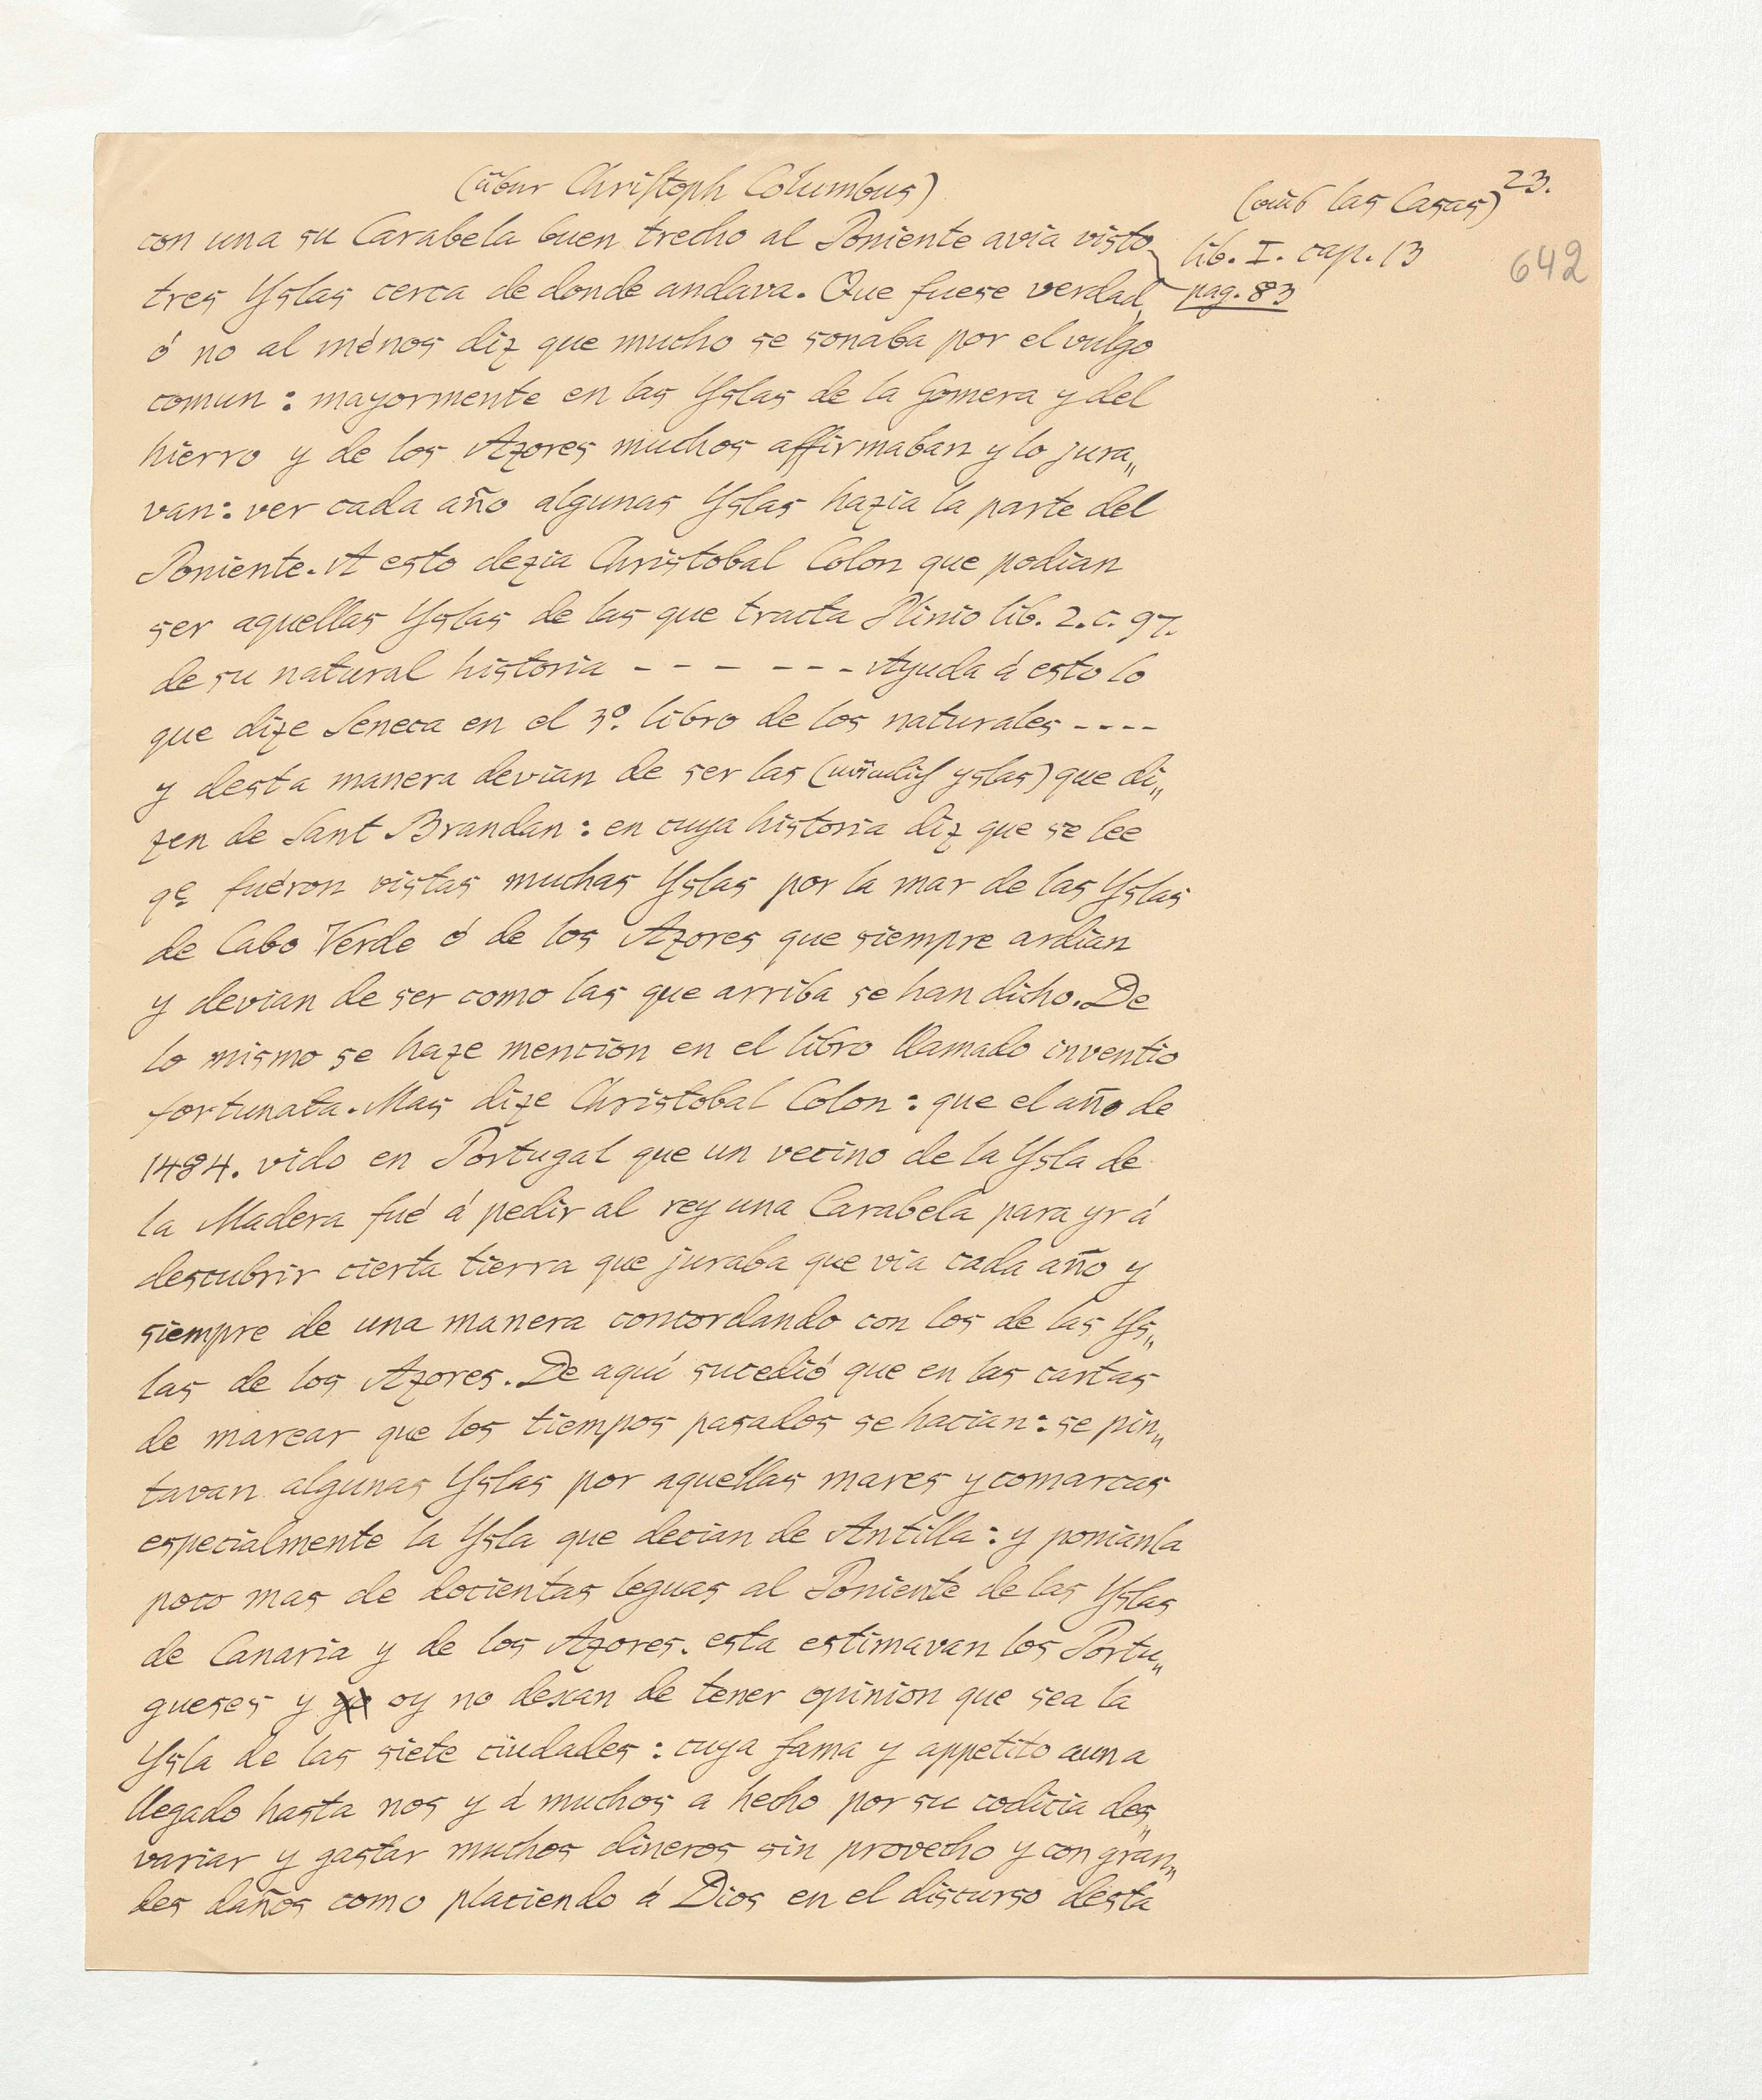 (über Christoph Columbus)
23.
(aus las Casas)
lib. I. cap. 13
pag. 83
642
con una su Carabela buen trecho al Poniente avia visto
tres Yslas cerca de donde andava. Que fuese verdad,
ó no al ménos diz que mucho se sonaba por el vulgo
comun : mayormente en las Yslas de la Gomera y del
hierro y de los Azores muchos affirmaban y lo jura„
van : ver cada año algunas Yslas hazia la parte del
Poniente. A esto dezia Christobal Colon que podian
ser aquellas Yslas de las que tracta Plinio lib. 2. c. 97.
de su natural historia - - - - - - - Ayuda á esto lo
que dize Seneca en el 3º. libro de los naturales - - - -
y desta manera devian de ser las (nämlich yslas) que di„
zen de Sant Brandan : en cuya historia diz que se lee
qe fuéron vistas muchas Yslas por la mar de las Yslas
de Cabo Verde ó de los Azores que siempre ardian
y devian de ser como las que arriba se han dicho. De
lo mismo se haze mencion en el libro llamado inventio
fortunata. Mas dize Christobal Colon : que el año de
1484. vido en Portugal que un vecino de la Ysla de
la Madera fué á pedir al rey una Carabela para yr á
descubrir cierta tierra que juraba que via cada año y
siempre de una manera concordando con los de las Ys„
las de los Azores. De aquí sucedió que en las cartas
de marear que los tiempos pasados se hacian : se pin„
tavan algunas Yslas por aquellas mares y comarcas
especialmente la Ysla que decian de Antilla : y ponianla
poco mas de docientas leguas al Poniente de las Yslas
de Canaria y de los Azores. esta estimavan los Portu„
gueses y oy no dexan de tener opinion que sea la
Ysla de las siete ciudades : cuya fama y appetito aun a
llegado hasta nos y á muchos a hecho por su codicia des„
variar y gastar muchos dineros sin provecho y con gran„
des daños como placiendo á Dios en el discurso desta